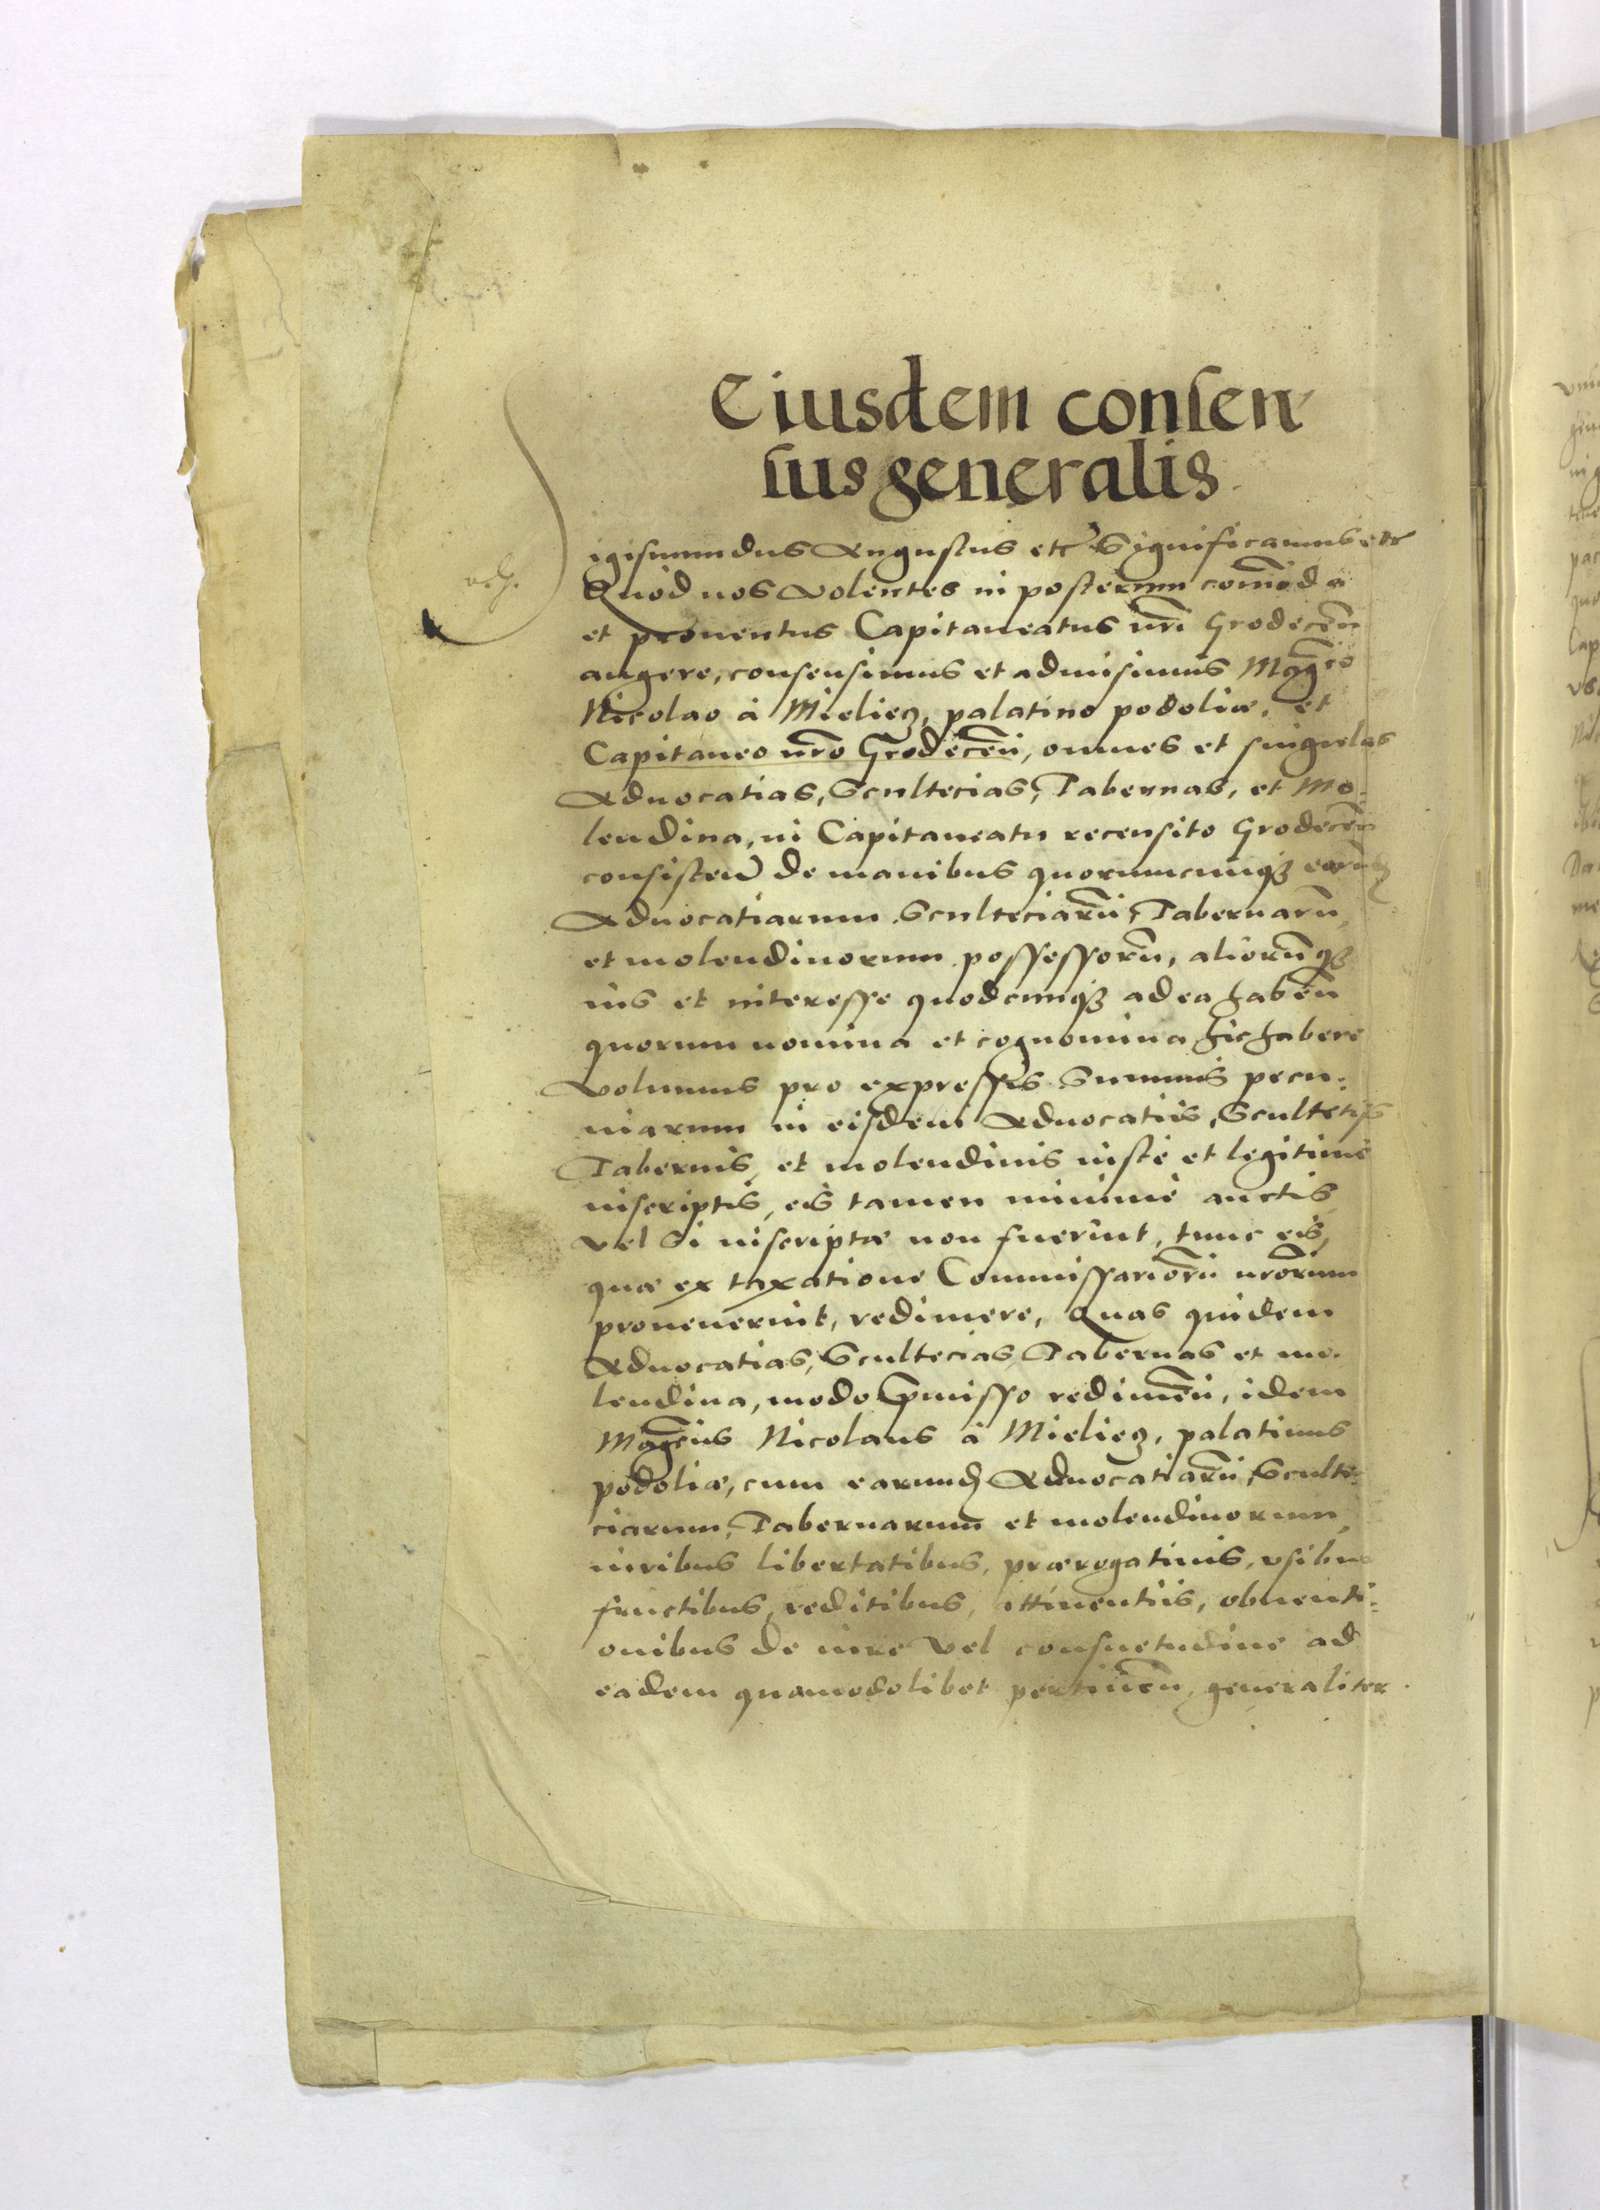 Eiusdem consen
sus generalis
Sigismundus Augustus etc Significamus etc
Quod nos volentes in posterum com̄oda
et prouentus Capitaneatus nr̄i Grodecen̄
augere, consensimus et admisimus Mag̃co
Nicolao à Mieliecz, palatino podoliæ, et
Capitaneo nr̄o Grodecen̄, omnes et singulas
Aduocatias, Scultecias, Tabernas, et Mo-
lendina, in Capitaneatu recensito Grodecen̄
consisten̄ de manibus quorumcunqꝫ
Aduocatiarum Sculteciarū, Tabernarū,
et molendinorum possessorū, aliorūqꝫ
ius et interesse quodcunqꝫ ad ea haben̄
quorum nomina et cognomina hic habere
volumus pro expressis Summis pecu-
niarum in eisdem Aduocatiis, Scultetiis
Tabernis, et molendinis iuste et legitime
inscriptis, eis tamen minime auctis
vel Si inscriptæ non fuerint, tunc eis,
quæ ex taxatione Commissariorū nr̄orum
prouenerint, redimere, Quas quidem
Aduocatias, Scultecias, Tabernas et mo-
lendina, modo p̄misso redimen̄, idem
Mag̃cus Nicolaus à Mieliecz, palatinus
podoliæ, cum earundꝫ Aduocatiarū, Sculte-
ciarum, Tabernarum et molendinorum,
iuribus libertatibus, prærogatiuis, vsibus
fructibus, reditibus, attinentiis, obuenti-
onibus de iure vel consuetudine ad
eadem quomodolibet pertinen̄, generaliter.